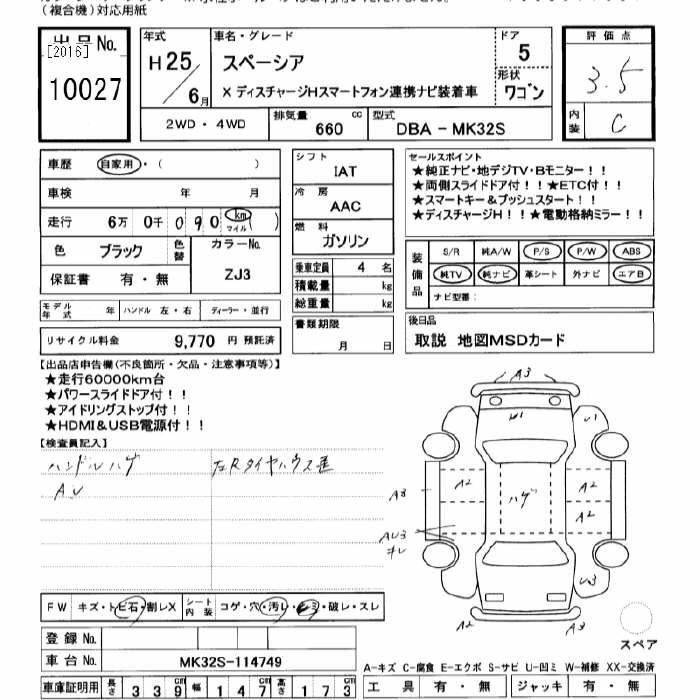 (複合機)対応用紙
出品No. [2016] 10027
年式 H25/6月
車名・グレード スペーシア
X ディスチャージHスマートフォン連携ナビ装着車
ドア 5
形状 ワゴン
評価点 3.5
内装 C
2WD・4WD
排気量 660 cc
型式 DBA-MK32S
車歴 自家用・( )
車検 年 月
走行 6万 0千 090 km マイル ( )
色 ブラック 色替 カラーNo. ZJ3
保証書 有・無
モデル年式 年 ハンドル 左・右 ディーラー・並行
リサイクル料金 9,770 円 預託済
シフト IAT
冷房 AAC
燃料 ガソリン
乗車定員 4 名
積載量 kg
総重量 kg
書類期限 月 日
セールスポイント
★純正ナビ・地デジTV・Bモニター!!
★両側スライドドア付!!★ETC付!!
★スマートキー&プッシュスタート!!
★ディスチャージH!!★電動格納ミラー!!
装備品 S/R 純A/W P/S P/W ABS
純TV 純ナビ 革シート 外ナビ エアB
ナビ型番:
後日品
取説 地図MSDカード
【出品店申告欄(不良箇所・欠品・注意事項等)】
★走行60000km台
★パワースライドドア付!!
★アイドリングストップ付!!
★HDMI&USB電源付!!
【検査員記入】
ハンドルハゲ
AU
左Rタイヤハウス
A3
W1
U1
A2
A2
A2
ハゲ
A3
AU3
キレ
W3
A2
A3
スペア
FW キズ・トビ石・割レX
シート内装 コゲ・穴・汚レ・シミ・破レ・スレ
登録No.
車台No. MK32S-114749
車庫証明用 長さ 339cm 幅 147cm 高さ 173cm
A-キズ C-腐食 E-エクボ S-サビ U-凹ミ W-補修 XX-交換済
工具 有・無 ジャッキ 有・無